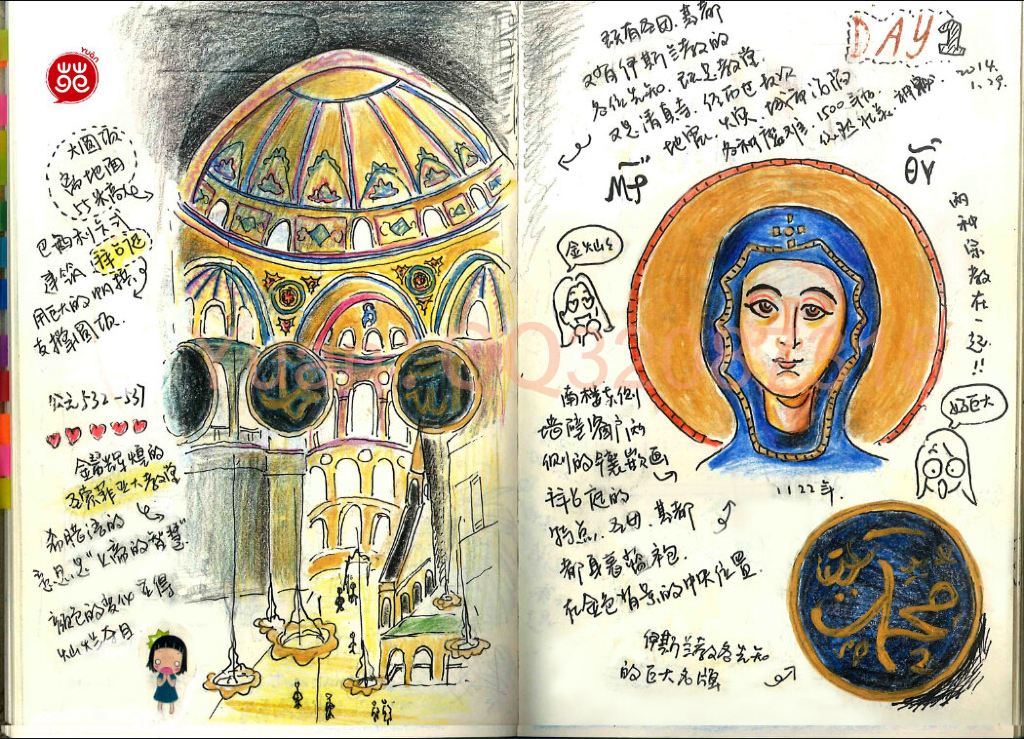 yuán
大圆顶
离地面
55米高
巴西利卡式
建筑 拜占廷
用巨大的帆拱
支撑圆顶.
公元532-537
金碧辉煌的
圣索菲亚大教堂
希腊语的
意思是"上帝的智慧"
颜色的变化 显得
灿烂夺目
既有圣母.基督
又有伊斯兰教的
各位先知. 既是教堂
又是清真寺.
地震. 火灾. 战争
1500年后
DAY 1
2014.
1.29.
两种宗教在一起!!
金灿灿
南楼东侧
墙壁窗户两
侧的镶嵌画
拜占庭的
特点. 圣母.基督
都身着蓝袍.
在金色背景的中央位置.
1122年.
好巨大
伊斯兰教各先知
的巨大名牌
محمد